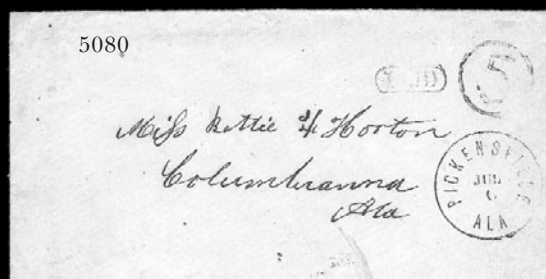 5080
PAID
5
Miss Kettie H Horton
Columbianna
Ala
PICKENSVILLE
ALA